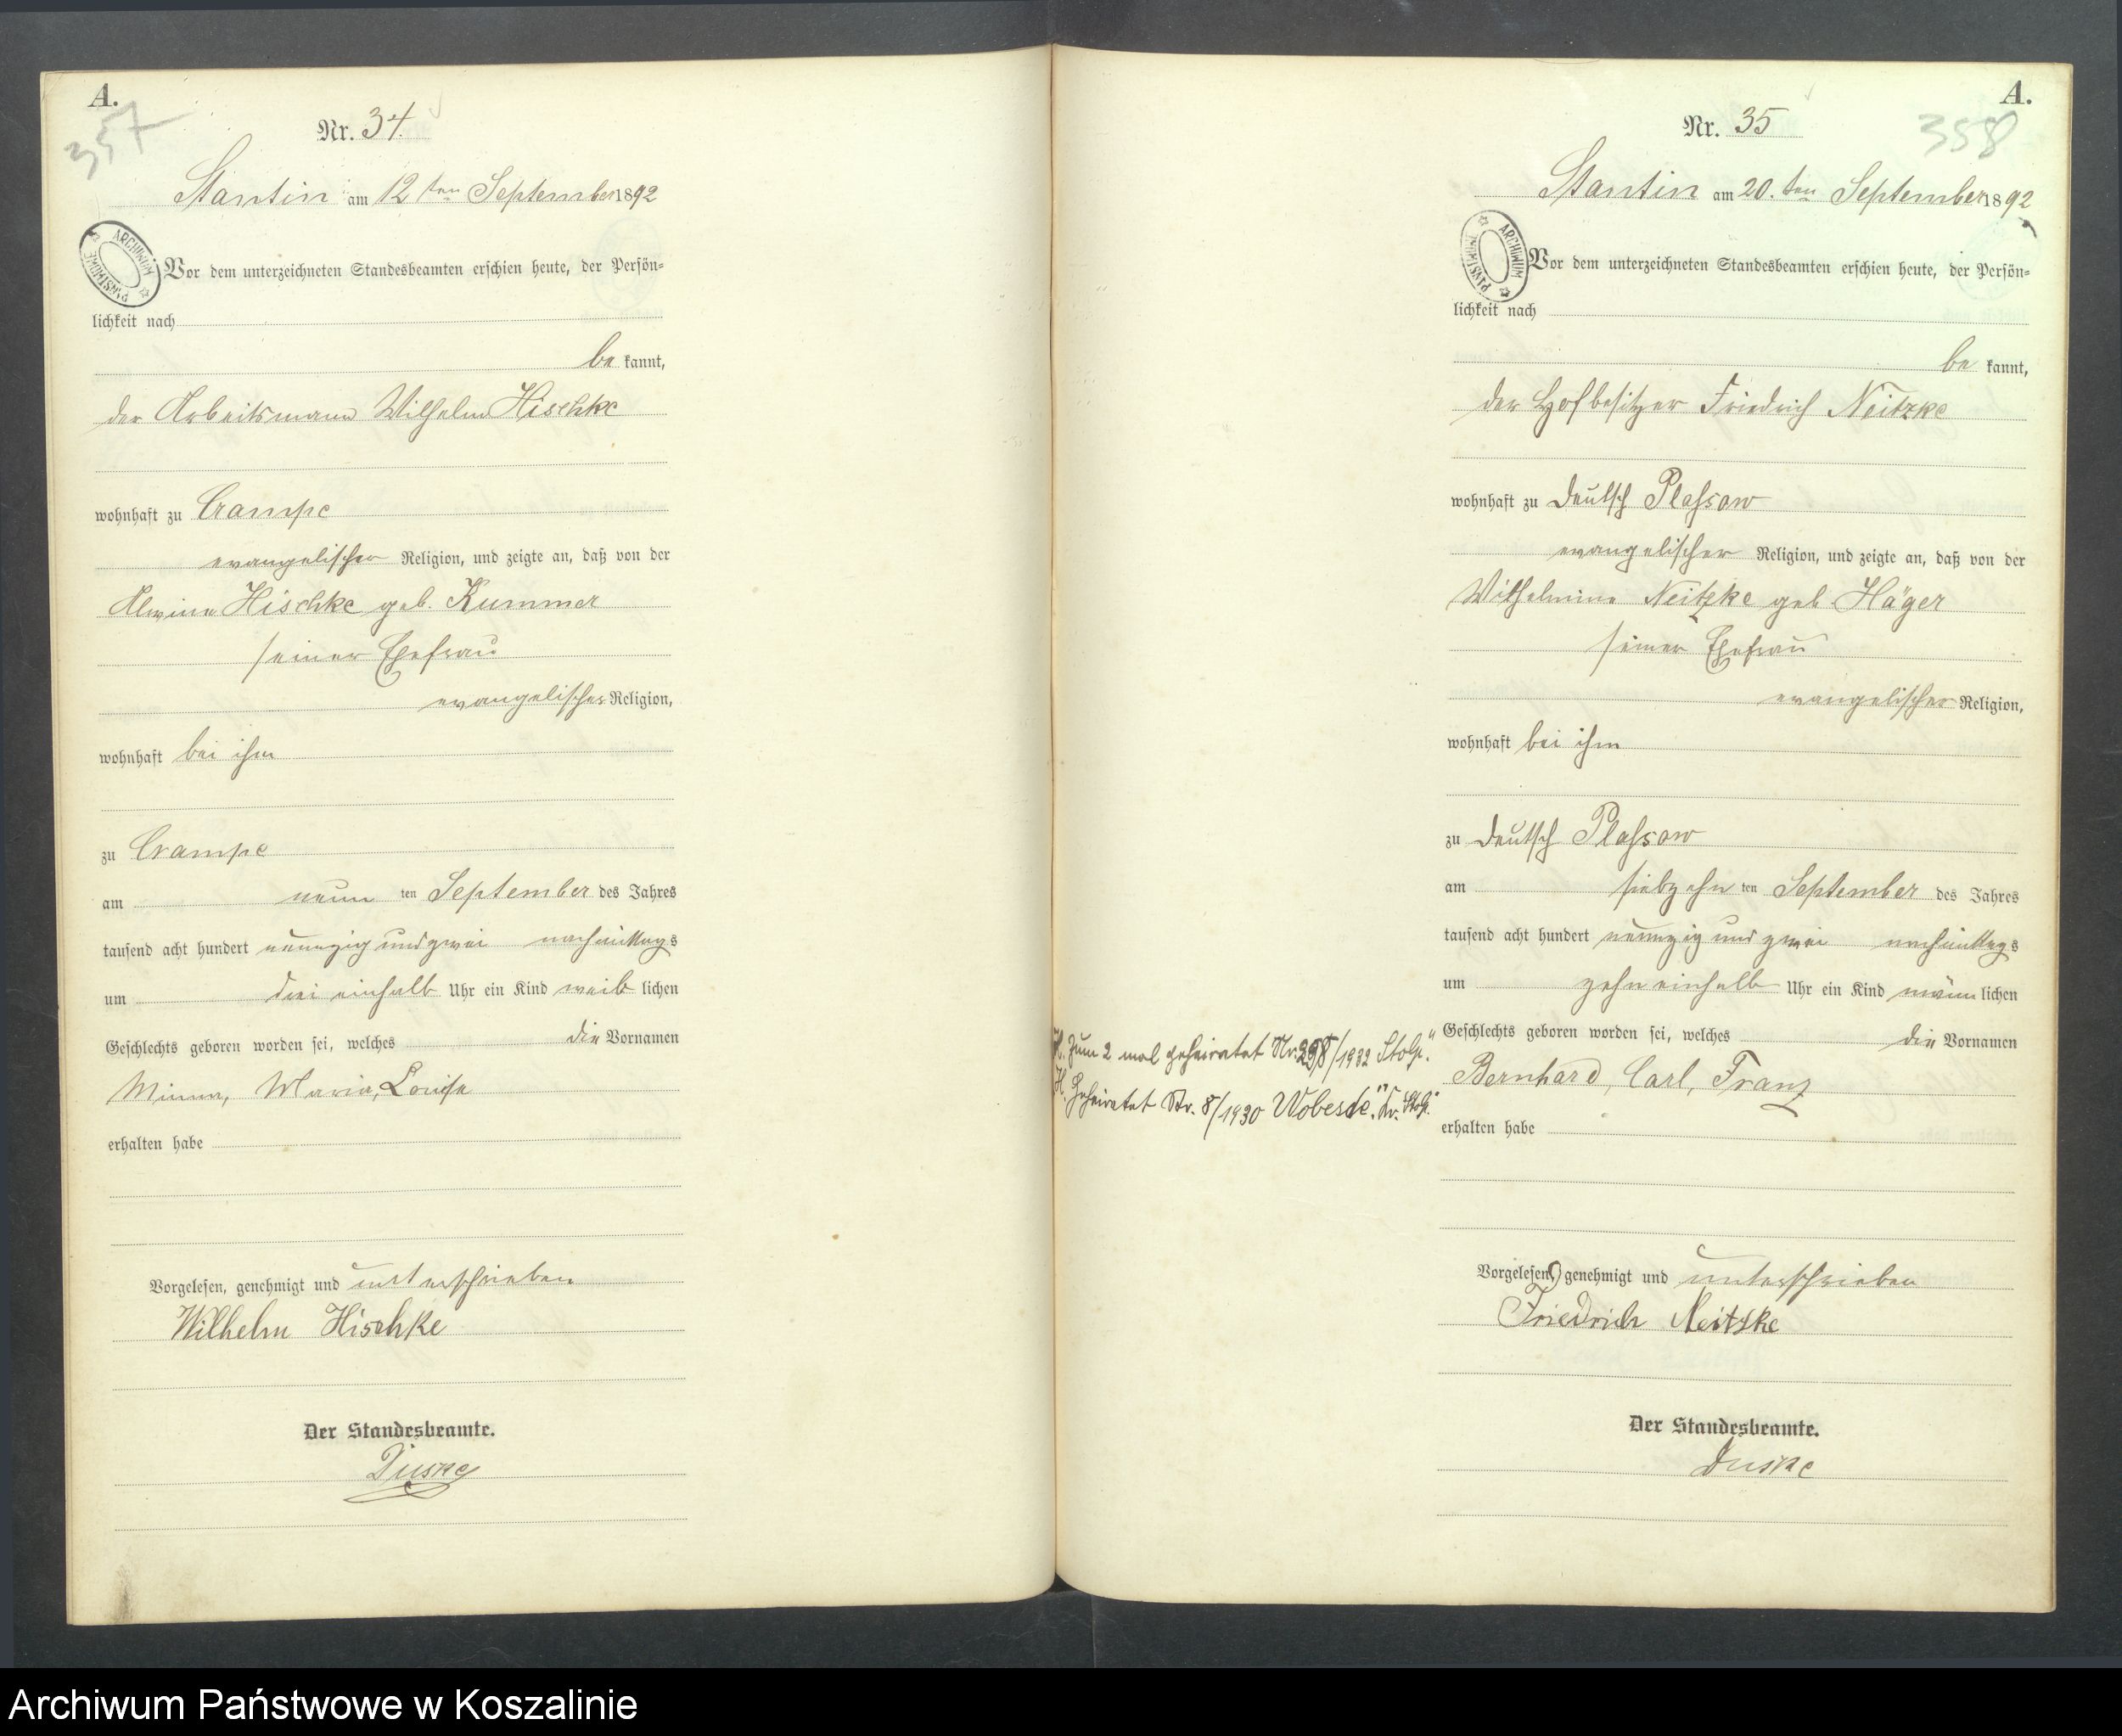 A.
357
Nr. 34.
Stantin am 12 ten September 1892
ARCHIWUM PAŃSTWOWE
Vor dem unterzeichneten Standesbeamten erschien heute, der Persön=
lichkeit nach
be kannt,
der Arbeitsmann Wilhelm Hischke
wohnhaft zu Crampe
evangelischer Religion, und zeigte an, daß von der
Alwine Hischke geb. Kummer
seiner Ehefrau
evangelischer Religion,
wohnhaft bei ihm
zu Crampe
am neun ten September des Jahres
tausend acht hundert neunzig und zwei nachmittags
um drei einhalb Uhr ein Kind weib lichen
Geschlechts geboren worden sei, welches die Vornamen
Minna, Maria, Louise
erhalten habe
Vorgelesen, genehmigt und unterschrieben
Wilhelm Hischke
Der Standesbeamte.
Duske
A.
358
Nr. 35
Stantin am 20. ten September 1892
ARCHIWUM PAŃSTWOWE
Vor dem unterzeichneten Standesbeamten erschien heute, der Persön=
lichkeit nach
be kannt,
der Hofbesitzer Friedrich Neitzke
wohnhaft zu Deutsch Plassow
evangelischer Religion, und zeigte an, daß von der
Wilhelmine Neitzke geb Häger
seiner Ehefrau
evangelischer Religion,
wohnhaft bei ihm
zu Deutsch Plassow
am siebzehn ten September des Jahres
tausend acht hundert neunzig und zwei nachmittags
um zehn einhalb Uhr ein Kind männ lichen
Geschlechts geboren worden sei, welches die Vornamen
Bernhard, Carl, Franz
erhalten habe
H. zum 2 mal geheiratet Nr. 298/1932 Stolp."
H. Geheiratet Nr. 8/1930 Wobesde." Kr. Stolp."
Vorgelesen, genehmigt und unterschrieben
Friedrich Neitzke
Der Standesbeamte.
Duske
Archiwum Państwowe w Koszalinie